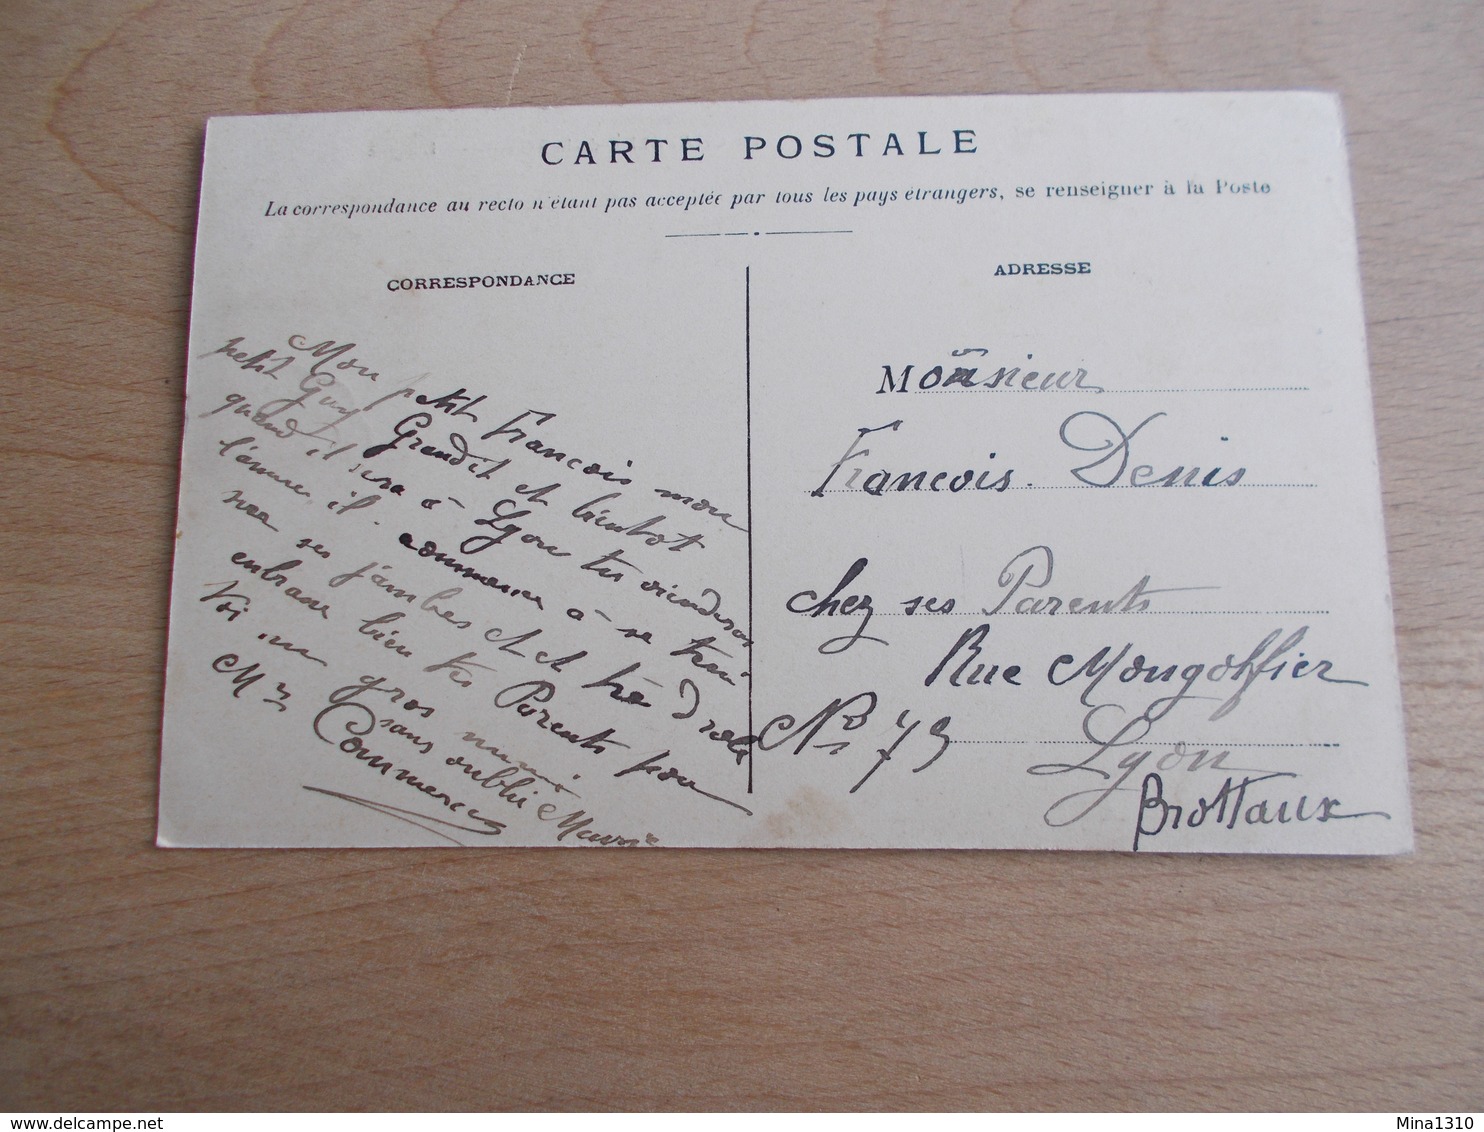 CARTE POSTALE
La correspondance au recto n'étant pas acceptée par tous les pays étrangers, se renseigner à la Poste
CORRESPONDANCE
Mon petit Francois mon
petit Guy Grandit et bientot
quand il sera à Lyon tu viendras
l'amuser il commence à se trai
ner ses jambes et et tré drole
embrasse bien tes Parents pour
toi un gros mimi
sans oublié Meur
Mr Commerce
ADRESSE
Monsieur
Francois Denis
chez ses Parents
Rue Mongolfier
No 79
Lyon
Brottaux
Mina1310